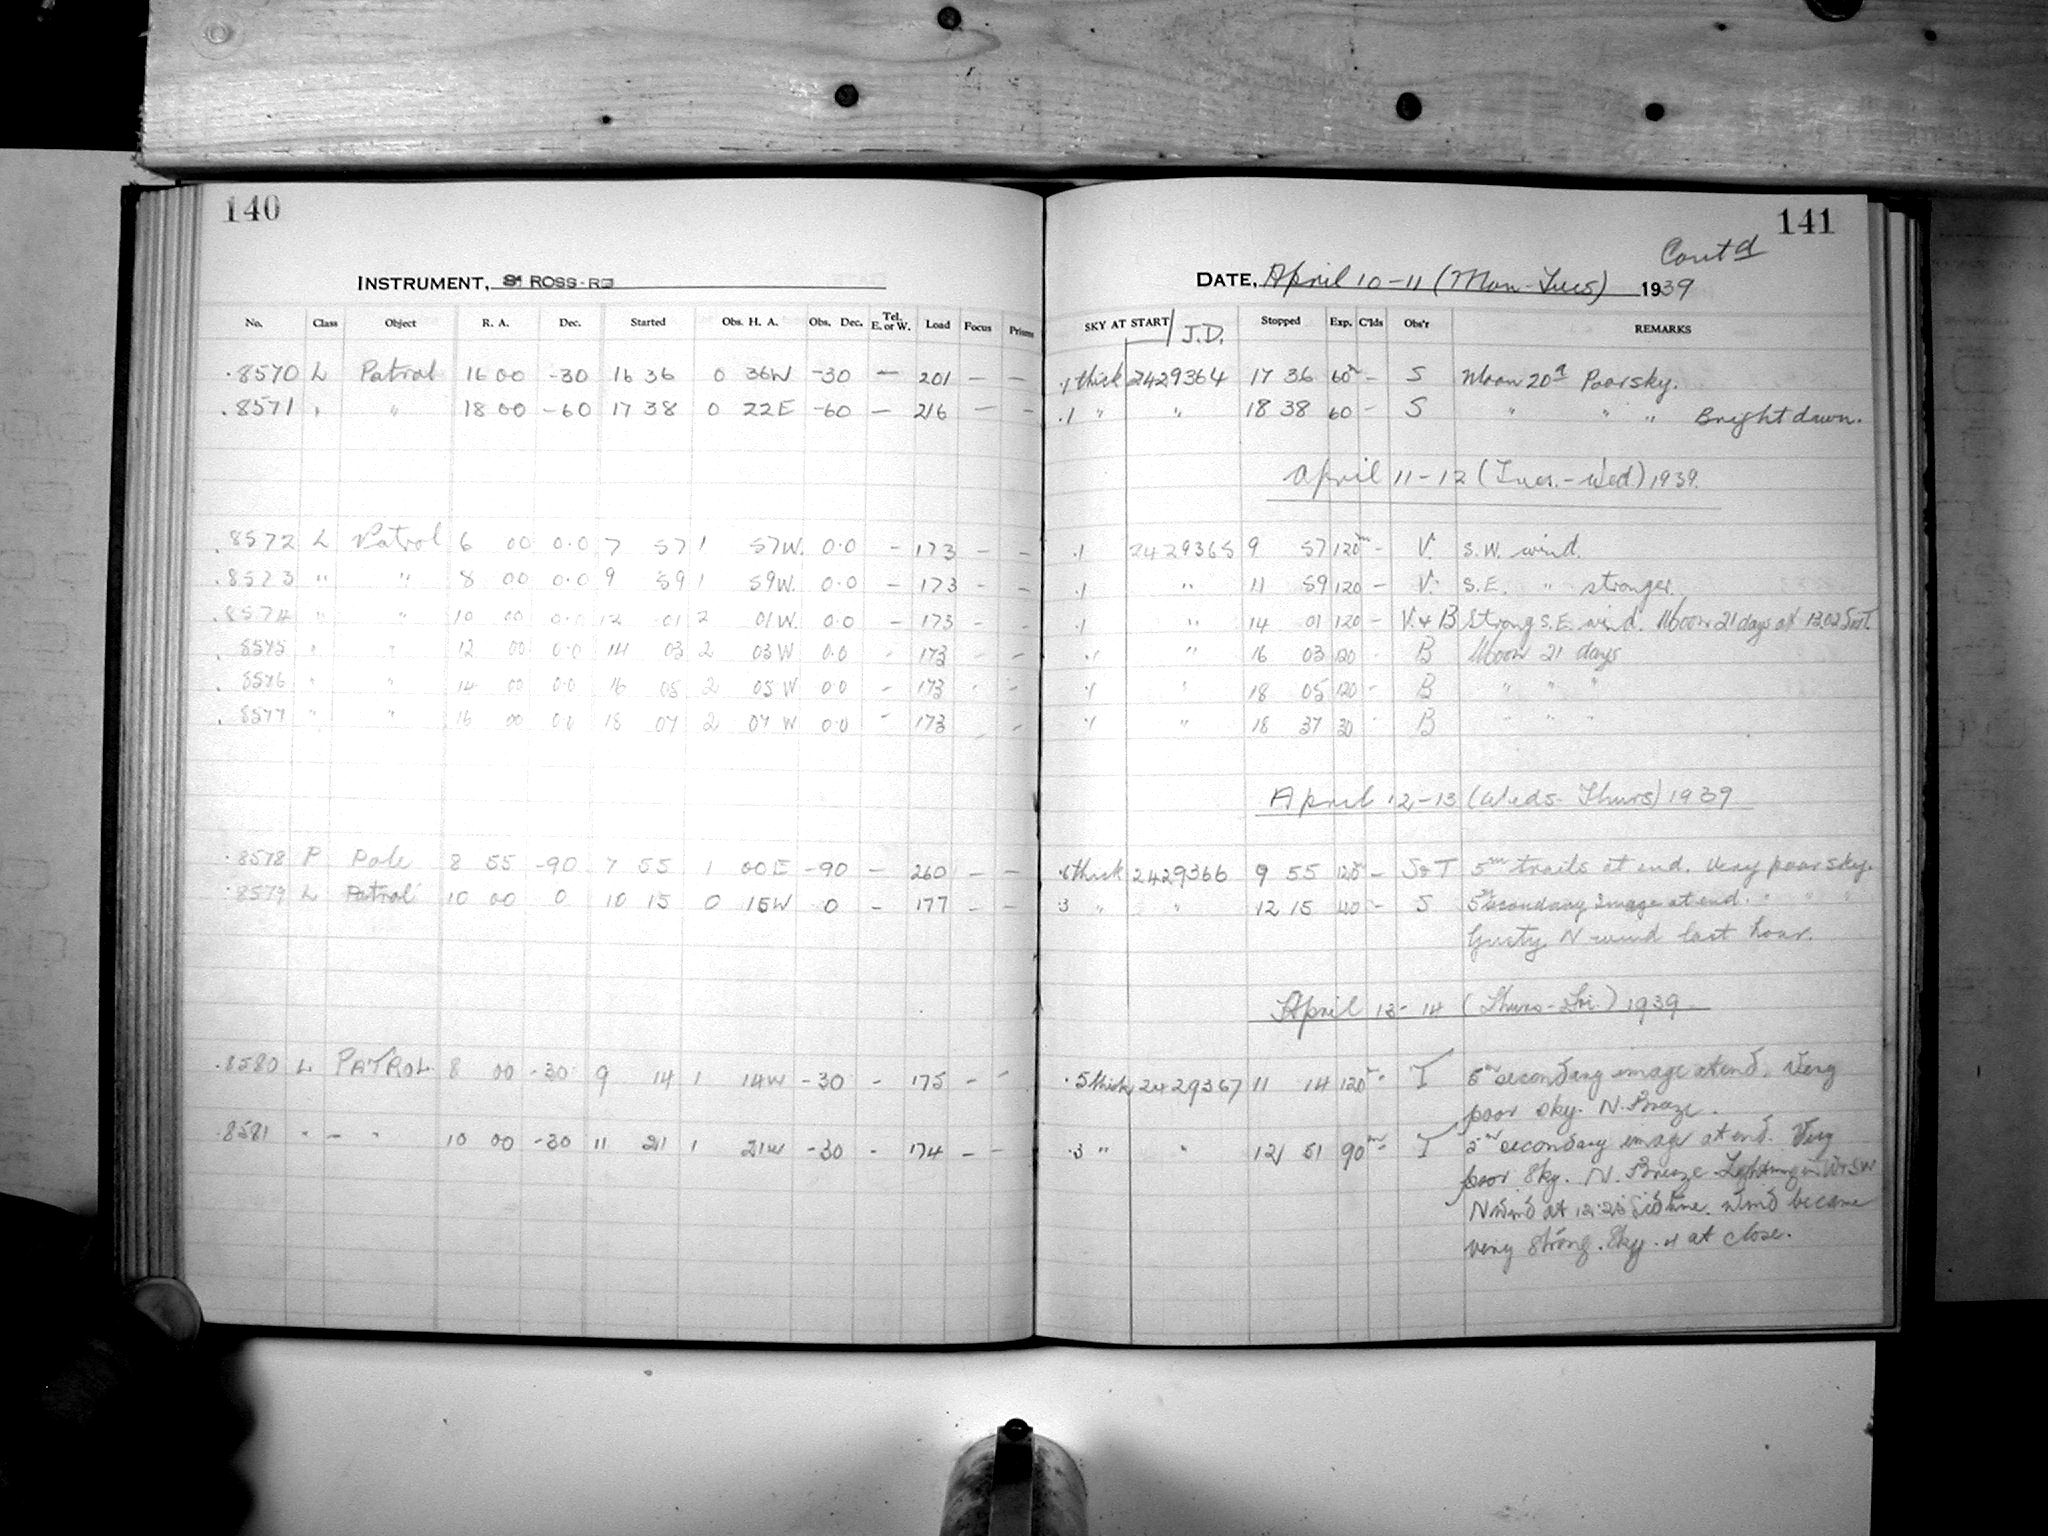 140
INSTRUMENT, ROSS-
No. Class Object R. A. Dec. Started Obs. H. A. Obs. Dec. Tel. E. or W. Load Focus Prisms
.8570 L Patrol 16 00 -30 16 36 0 36W -30 — 201 — —
.8571 " " 18 00 -60 17 38 0 22E -60 — 216 — —
.8572 L Patrol 6 00 0.0 7 57 1 57W. 0.0 — 173 — —
.8573 " " 8 00 0.0 9 59 1 59W. 0.0 — 173 — —
.8574 " " 10 00 0.0 12 01 2 01W. 0.0 — 173 — —
.8575 " " 12 00 0.0 14 03 2 03W 0.0 - 173 - -
.8576 " " 14 00 0.0 16 05 2 05W 0.0 - 173 - -
.8577 " " 16 00 0.0 18 07 2 07W 0.0 - 173 - -
.8578 P Pole 8 55 -90 7 55 1 00E -90 — 260 — —
.8579 L Patrol 10 00 0 10 15 0 15W 0 — 177 — —
.8580 L PATROL 8 00 -30 9 14 1 14W -30 - 175 - -
.8581 - - " 10 00 -30 11 21 1 21W -30 - 174 - -
141
Cont'd
DATE, April 10-11 (Mon-Tues) 1939
SKY AT START J.D. Stopped Exp. C'lds Obs'r REMARKS
.1 thick 2429364 17 36 60m - S Moon 20d Poor sky.
.1 " " 18 38 60 - S " " " Bright dawn.
April 11-12 (Tues.-Wed) 1939.
.1 2429365 9 57 120m - V. S.W. wind.
.1 " 11 59 120 - V. S.E. " stronger.
.1 " 14 01 120 - V.&B Strong S.E. wind. Moon 21 days at 1302
.1 " 16 03 120 - B Moon 21 days
.1 " 18 05 120 - B " " "
.1 " 18 37 30 - B " " "
April 12-13 (Weds-Thurs) 1939
thick 2429366 9 55 - S&T 5m trails at end. Very poor sky.
3 " " 12 15 120 - S 5m secondary image at end. " " "
Gusty N wind last hour.
April 13-14 (Thurs-Fri.) 1939
.5 thick 2429367 11 14 120m - T 5m secondary image at end. Very
poor sky. N. Breeze.
.3 " " 12 51 90m - T 5m secondary image at end. Very
poor Sky. N. Breeze Lightning in W&SW
N wind at 12:25 Sid time. wind became
very strong. Sky .4 at close.